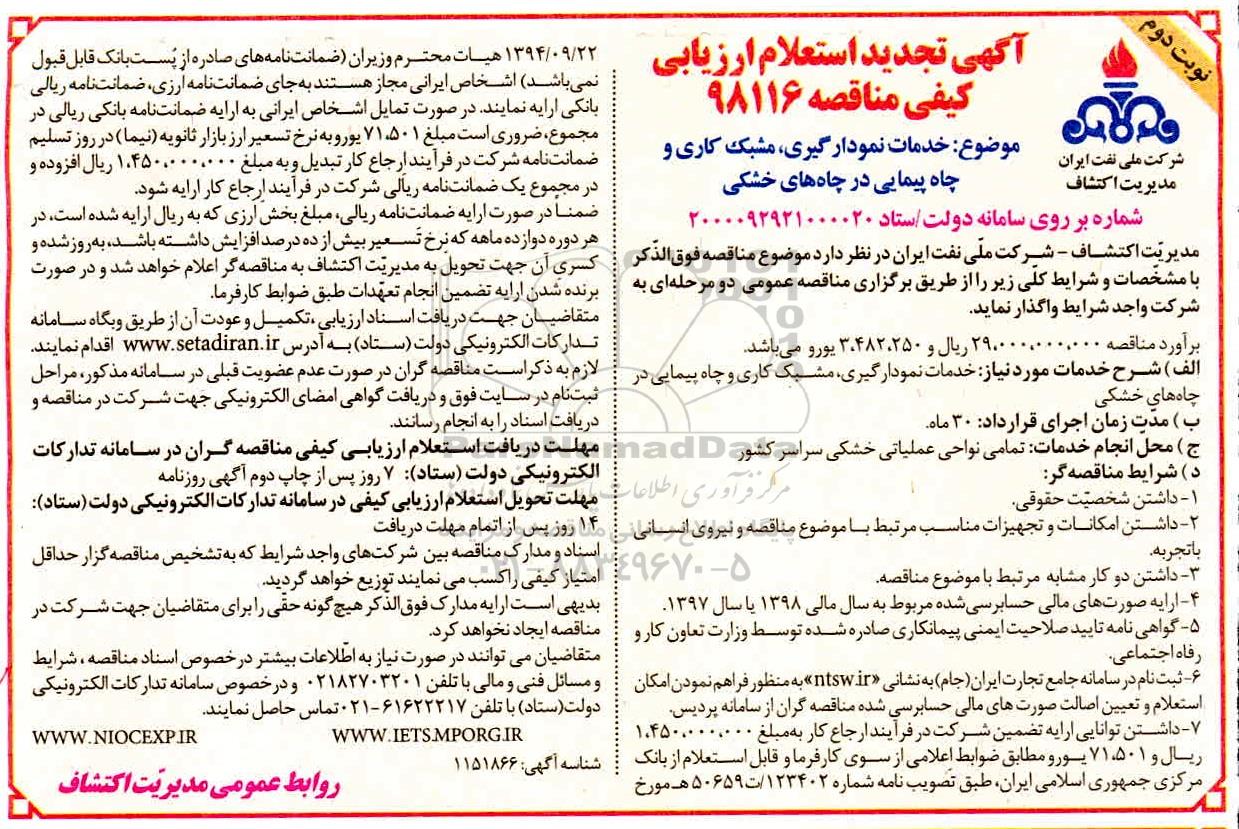 نوبت دوم
شرکت ملی نفت ایران
مدیریت اکتشاف
آگهی تجدید استعلام ارزیابی
کیفی مناقصه ۹۸۱۱۶
موضوع: خدمات نمودارگیری، مشبک کاری و
چاه پیمایی در چاه‌های خشکی
شماره بر روی سامانه دولت/ستاد ۲۰۰۰۰۹۲۹۲۱۰۰۰۰۲۰
مدیریّت اکتشاف – شرکت ملّی نفت ایران در نظر دارد موضوع مناقصه فوق‌الذّکر
با مشخّصات و شرایط کلّی زیر را از طریق برگزاری مناقصه عمومی دو مرحله‌ای به
شرکت واجد شرایط واگذار نماید.
برآورد مناقصه ۲۹،۰۰۰،۰۰۰،۰۰۰ ریال و ۳،۴۸۲،۲۵۰ یورو می‌باشد.
الف) شرح خدمات مورد نیاز: خدمات نمودارگیری، مشبک کاری و چاه پیمایی در
چاه‌های خشکی
ب) مدّت زمان اجرای قرارداد: ۳۰ ماه.
ج) محلّ انجام خدمات: تمامی نواحی عملیاتی خشکی سراسر کشور
د) شرایط مناقصه‌گر:
۱- داشتن شخصیّت حقوقی.
۲- داشتن امکانات و تجهیزات مناسب مرتبط با موضوع مناقصه و نیروی انسانی
باتجربه.
۳- داشتن دو کار مشابه مرتبط با موضوع مناقصه.
۴- ارایه صورت‌های مالی حسابرسی‌شده مربوط به سال مالی ۱۳۹۸ یا سال ۱۳۹۷.
۵- گواهی نامه تایید صلاحیت ایمنی پیمانکاری صادره شده توسط وزارت تعاون کار و
رفاه اجتماعی.
۶- ثبت نام در سامانه جامع تجارت ایران (جام) به نشانی «ntsw.ir» به منظور فراهم نمودن امکان
استعلام و تعیین اصالت صورت های مالی حسابرسی شده مناقصه گران از سامانه پردیس.
۷- داشتن توانایی ارایه تضمین شرکت در فرآیند ارجاع کار به مبلغ ۱،۴۵۰،۰۰۰،۰۰۰
ریال و ۷۱،۵۰۱ یورو مطابق ضوابط اعلامی از سوی کارفرما و قابل استعلام از بانک
مرکزی جمهوری اسلامی ایران، طبق تصویب نامه شماره ۱۲۳۴۰۲/ت۵۰۶۵۹هـ مورخ
۱۳۹۴/۰۹/۲۲ هیات محترم وزیران (ضمانت‌نامه‌های صادره از پُست‌بانک قابل قبول
نمی‌باشد) اشخاص ایرانی مجاز هستند به‌جای ضمانت‌نامه ارزی، ضمانت‌نامه ریالی
بانکی ارایه نمایند. در صورت تمایل اشخاص ایرانی به ارایه ضمانت‌نامه بانکی ریالی در
مجموع، ضروری است مبلغ ۷۱،۵۰۱ یورو به نرخ تسعیر ارز بازار ثانویه (نیما) در روز تسلیم
ضمانت‌نامه شرکت در فرآیند ارجاع کار تبدیل و به مبلغ ۱،۴۵۰،۰۰۰،۰۰۰ ریال افزوده و
در مجموع یک ضمانت‌نامه ریالی شرکت در فرآیند ارجاع کار ارایه شود.
ضمناً در صورت ارایه ضمانت‌نامه ریالی، مبلغ بخش ارزی که به ریال ارایه شده است، در
هر دوره دوازده ماهه که نرخ تسعیر بیش از ده درصد افزایش داشته باشد، به‌روز شده و
کسری آن جهت تحویل به مدیریّت اکتشاف به مناقصه‌گر اعلام خواهد شد و در صورت
برنده شدن ارایه تضمین انجام تعهّدات طبق ضوابط کارفرما.
متقاضیان جهت دریافت اسناد ارزیابی ،تکمیل و عودت آن از طریق وبگاه سامانه
تدارکات الکترونیکی دولت (ستاد) به آدرس www.setadiran.ir اقدام نمایند.
لازم به ذکر است مناقصه گران در صورت عدم عضویت قبلی در سامانه مذکور، مراحل
ثبت‌نام در سایت فوق و دریافت گواهی امضای الکترونیکی جهت شرکت در مناقصه و
دریافت اسناد را به انجام رسانند.
مهلت دریافت استعلام ارزیابی کیفی مناقصه گران در سامانه تدارکات
الکترونیکی دولت (ستاد): ۷ روز پس از چاپ دوم آگهی روزنامه
مهلت تحویل استعلام ارزیابی کیفی در سامانه تدارکات الکترونیکی دولت (ستاد):
۱۴ روز پس از اتمام مهلت دریافت
اسناد و مدارک مناقصه بین شرکت‌های واجد شرایط که به‌تشخیص مناقصه‌گزار حداقل
امتیاز کیفی را کسب می نمایند توزیع خواهد گردید.
بدیهی است ارایه مدارک فوق‌الذّکر هیچ‌گونه حقّی را برای متقاضیان جهت شرکت در
مناقصه ایجاد نخواهد کرد.
متقاضیان می توانند در صورت نیاز به اطّلاعات بیشتر درخصوص اسناد مناقصه ، شرایط
و مسائل فنی و مالی با تلفن ۰۲۱۸۲۷۰۳۲۰۱ و درخصوص سامانه تدارکات الکترونیکی
دولت (ستاد) با تلفن ۶۱۶۲۲۲۱۷-۰۲۱ تماس حاصل نمایند.
WWW.IETS.MPORG.IR WWW.NIOCEXP.IR
شناسه آگهی: ۱۱۵۱۸۶۶
روابط عمومی مدیریّت اکتشاف
ParsNamadData
۰۲۱-۸۸۳۴۹۶۷۰-۵